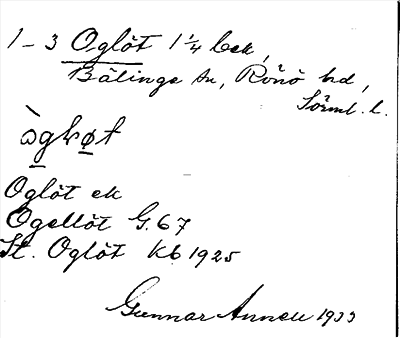 1-3 Oglöt 1 1/4 bek,
Bälinge sn, Rönö hd,
Sörml. l.
Oglöt ek
Ogellöt G. 67
St. Oglöt Kb 1925
Gunnar Annell 1933